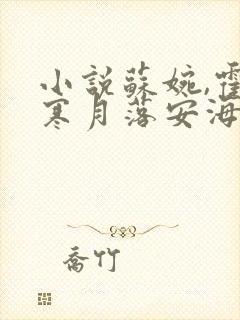 小説蘇婉,霍
寒月落安海
喬竹